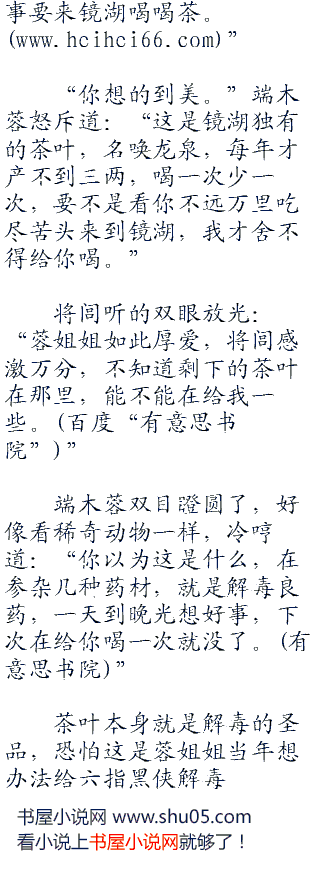 事要来镜湖喝喝茶。
(www.hcihci66.com)”
“你想的到美。”端木
蓉怒斥道：“这是镜湖独有
的茶叶，名唤龙泉，每年才
产不到三两，喝一次少一
次，要不是看你不远万里吃
尽苦头来到镜湖，我才舍不
得给你喝。”
将闾听的双眼放光：
“蓉姐姐如此厚爱，将闾感
激万分，不知道剩下的茶叶
在那里，能不能在给我一
些。(百度“有意思书
院”)”
端木蓉双目瞪圆了，好
像看稀奇动物一样，冷哼
道：“你以为这是什么，在
参杂几种药材，就是解毒良
药，一天到晚光想好事，下
次在给你喝一次就没了。(有
意思书院)”
茶叶本身就是解毒的圣
品，恐怕这是蓉姐姐当年想
办法给六指黑侠解毒
书屋小说网 www.shu05.com
看小说上书屋小说网就够了！